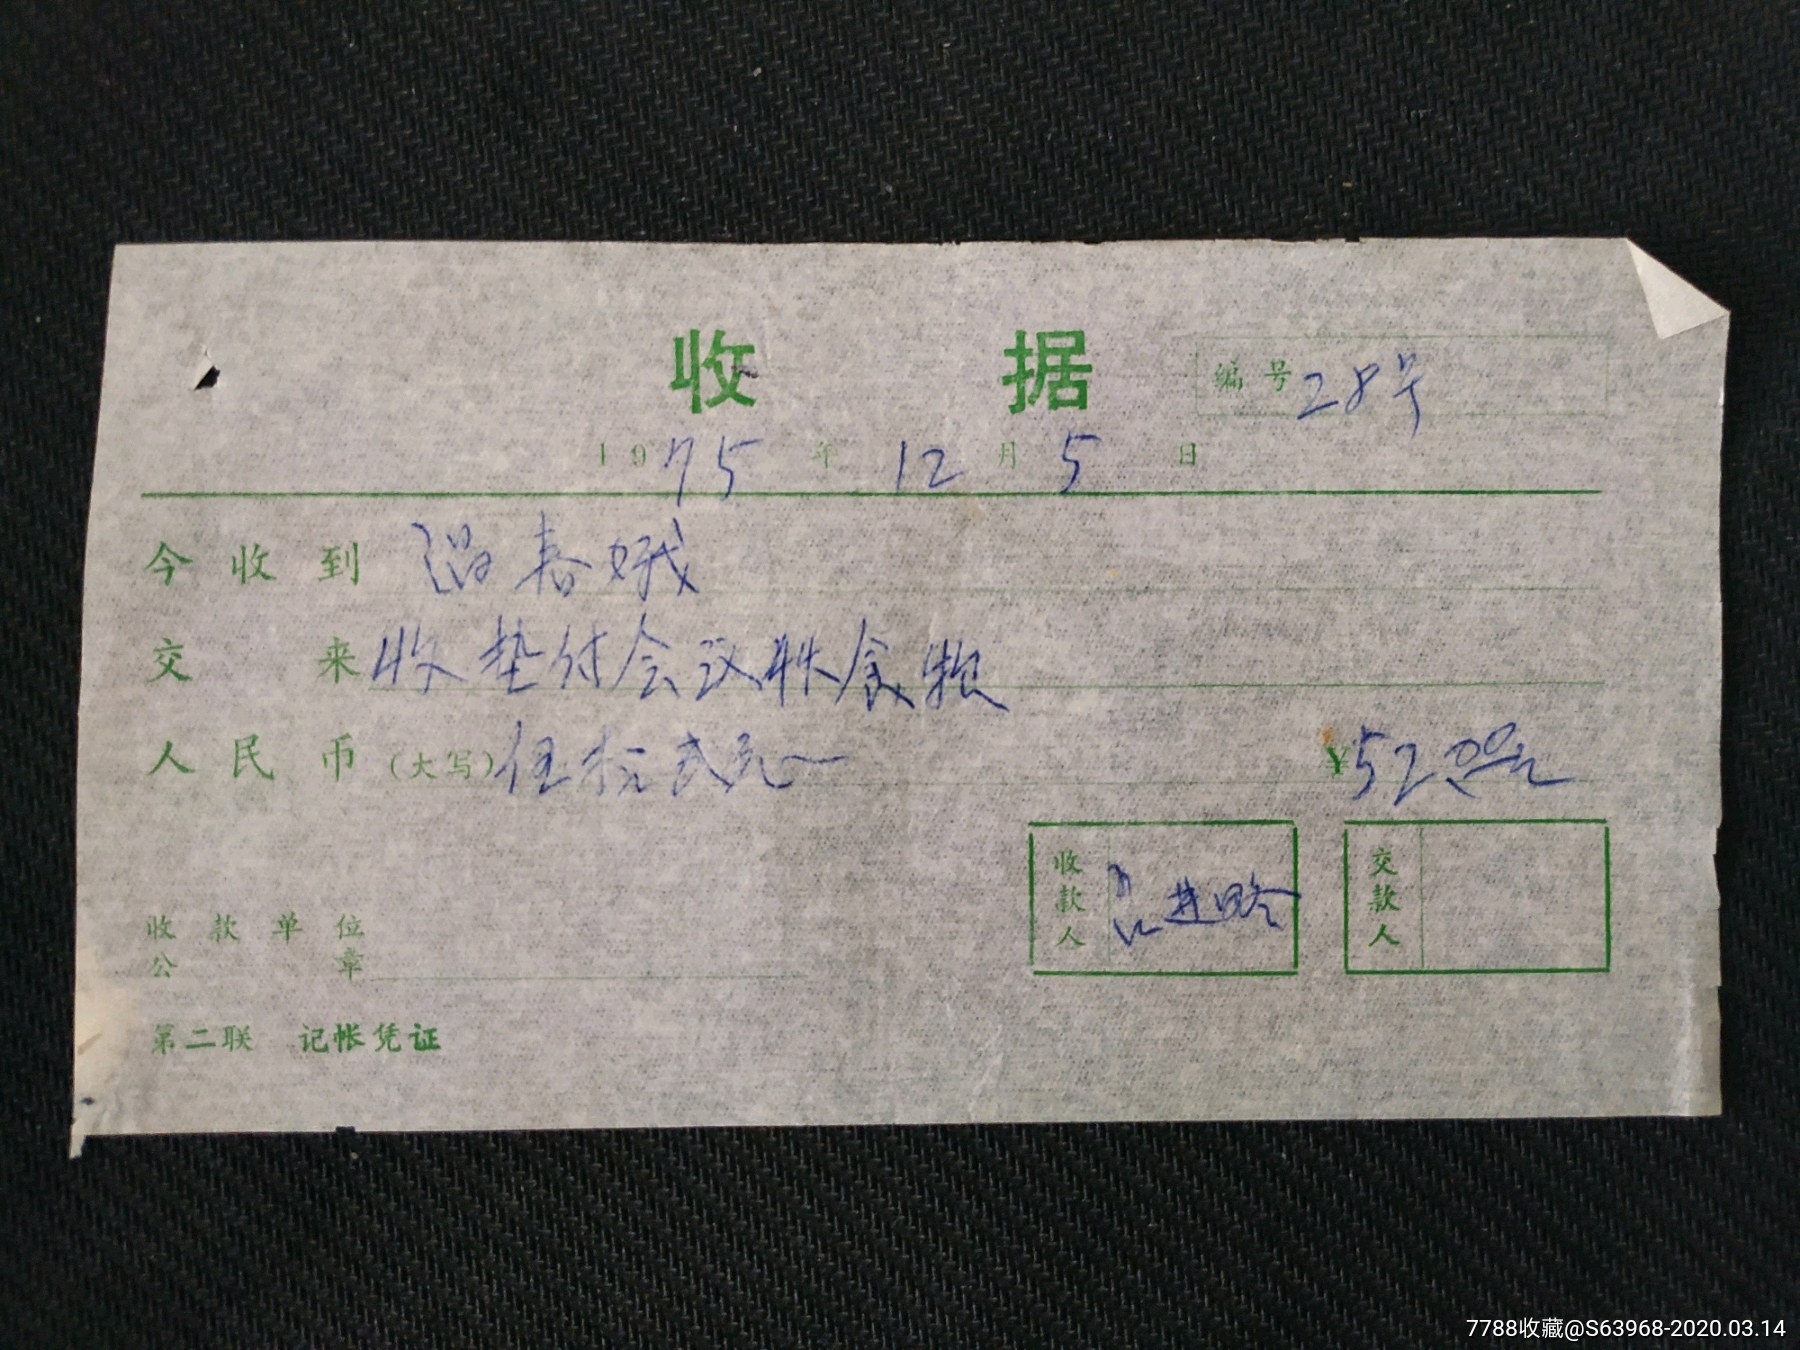 收 据
编号 28号
1975年12月5日
今收到 温春娥
交来 收垫付会议伙食粮
人民币（大写）伍拾弍元
¥52.00元
收款人 进略
交款人
收款单位
公章
第二联 记帐凭证
7788收藏@S63968-2020.03.14